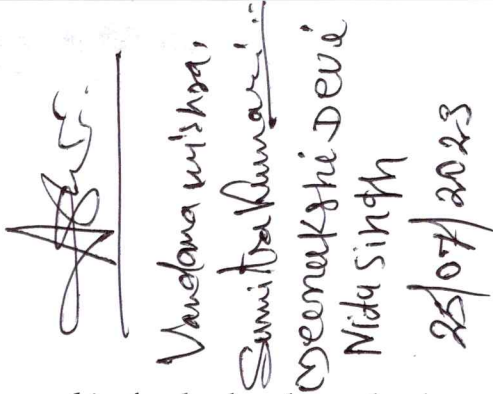 Vandana Mishra,
Sumitra Kumari :-
Meenakshi Devi
Nidu Singh
25/07/2023